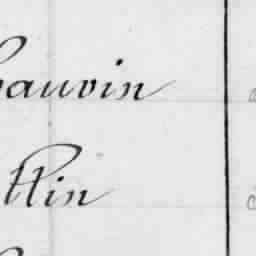 hauvin
ttin